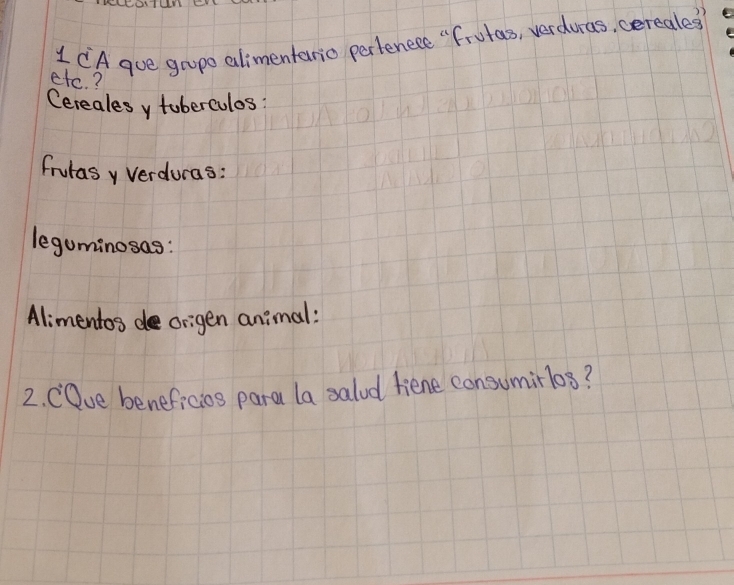 1 ¿A que grupo alimentario pertenece "frutas, verduras, cereales"
etc.?
Cereales y tuberculos:
frutas y verduras:
leguminosas:
Alimentos de origen animal:
2. ¿Que beneficios para la salud tiene consumirlos?